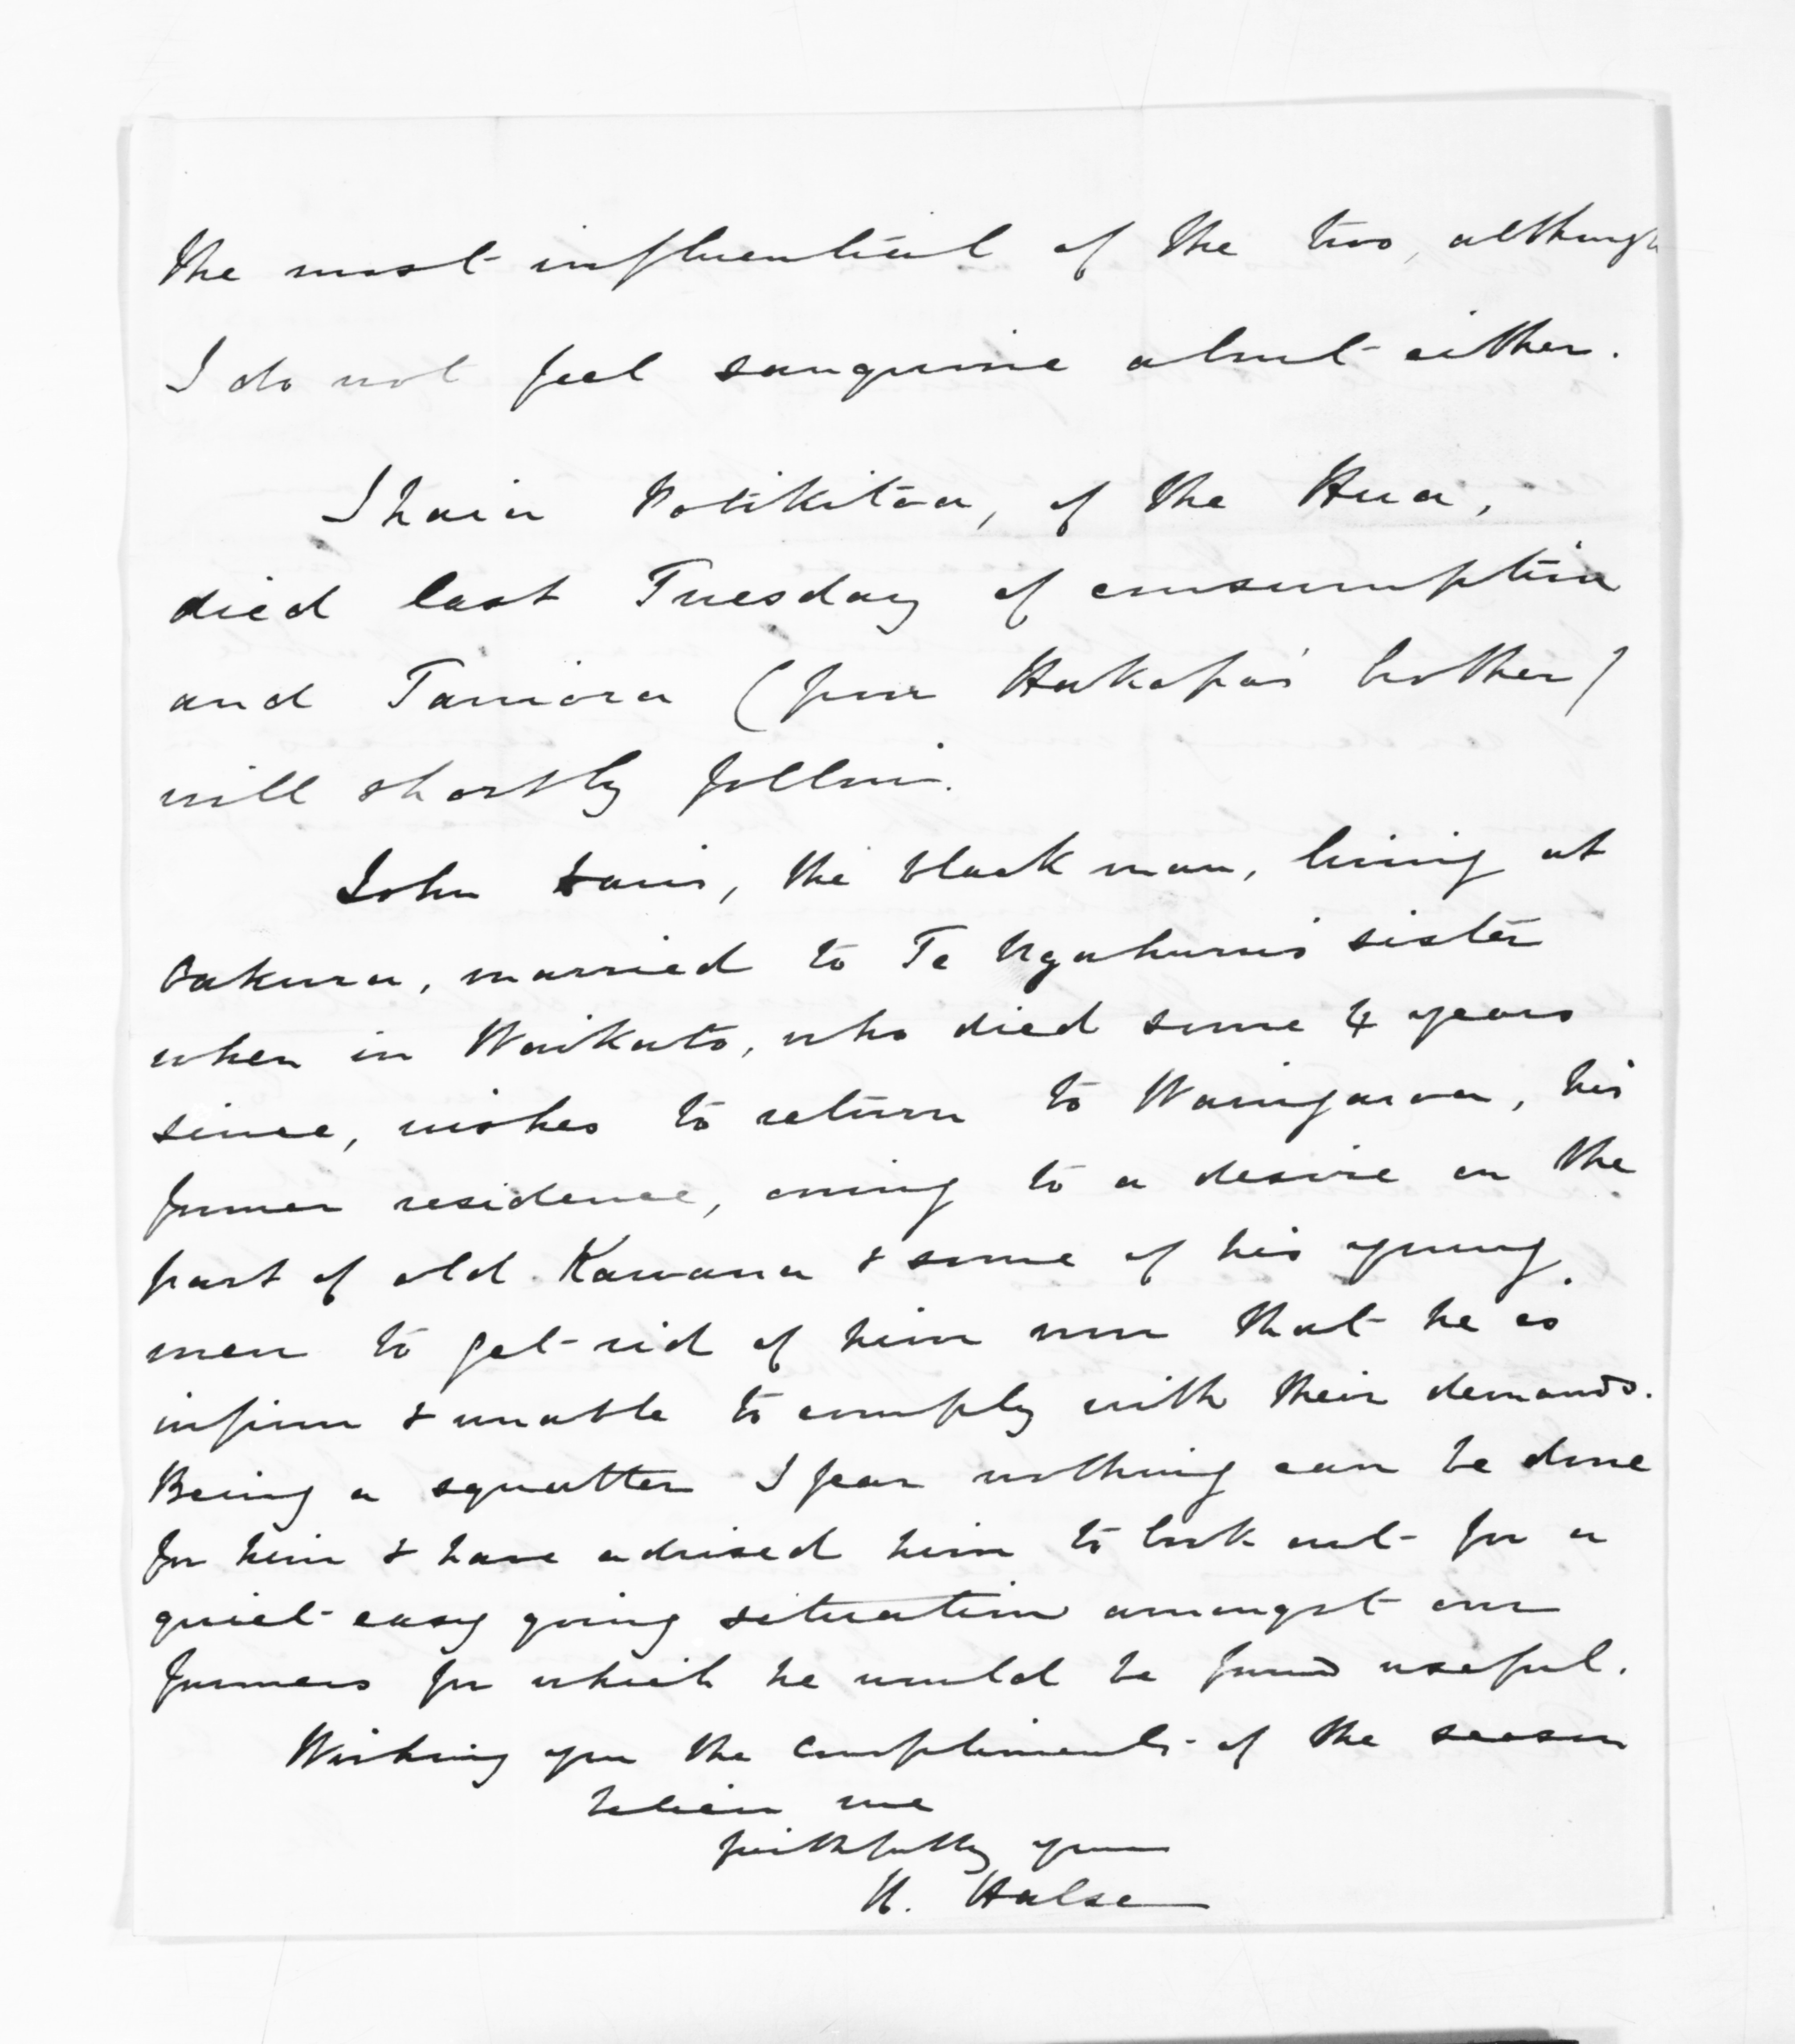 the most influential of the two, although
I do not feel sanguine about either.
Ihaia Potikitaa, of the Hua,
died last Tuesday of consumption
and Tamiora (poor Hakopa's brother)
will shortly follow.
John Davis, the black man, living at
Oakura, married to Te Ngahuru's sister
when in Waikato, who died some 4 years
since, wishes to return to Waingaroa, his
former residence, owing to a desire on the
part of old Kawana & some of his young
men to get rid of him now that he is
infirm & unable to comply with their demands.
Being a squatter I fear nothing can be done
for him & have advised him to look out for a
quiet easy going situation amongst our
farmers for which he would be found useful.
Wishing you the compliments of the season
believe me
faithfully yours
H. Halse